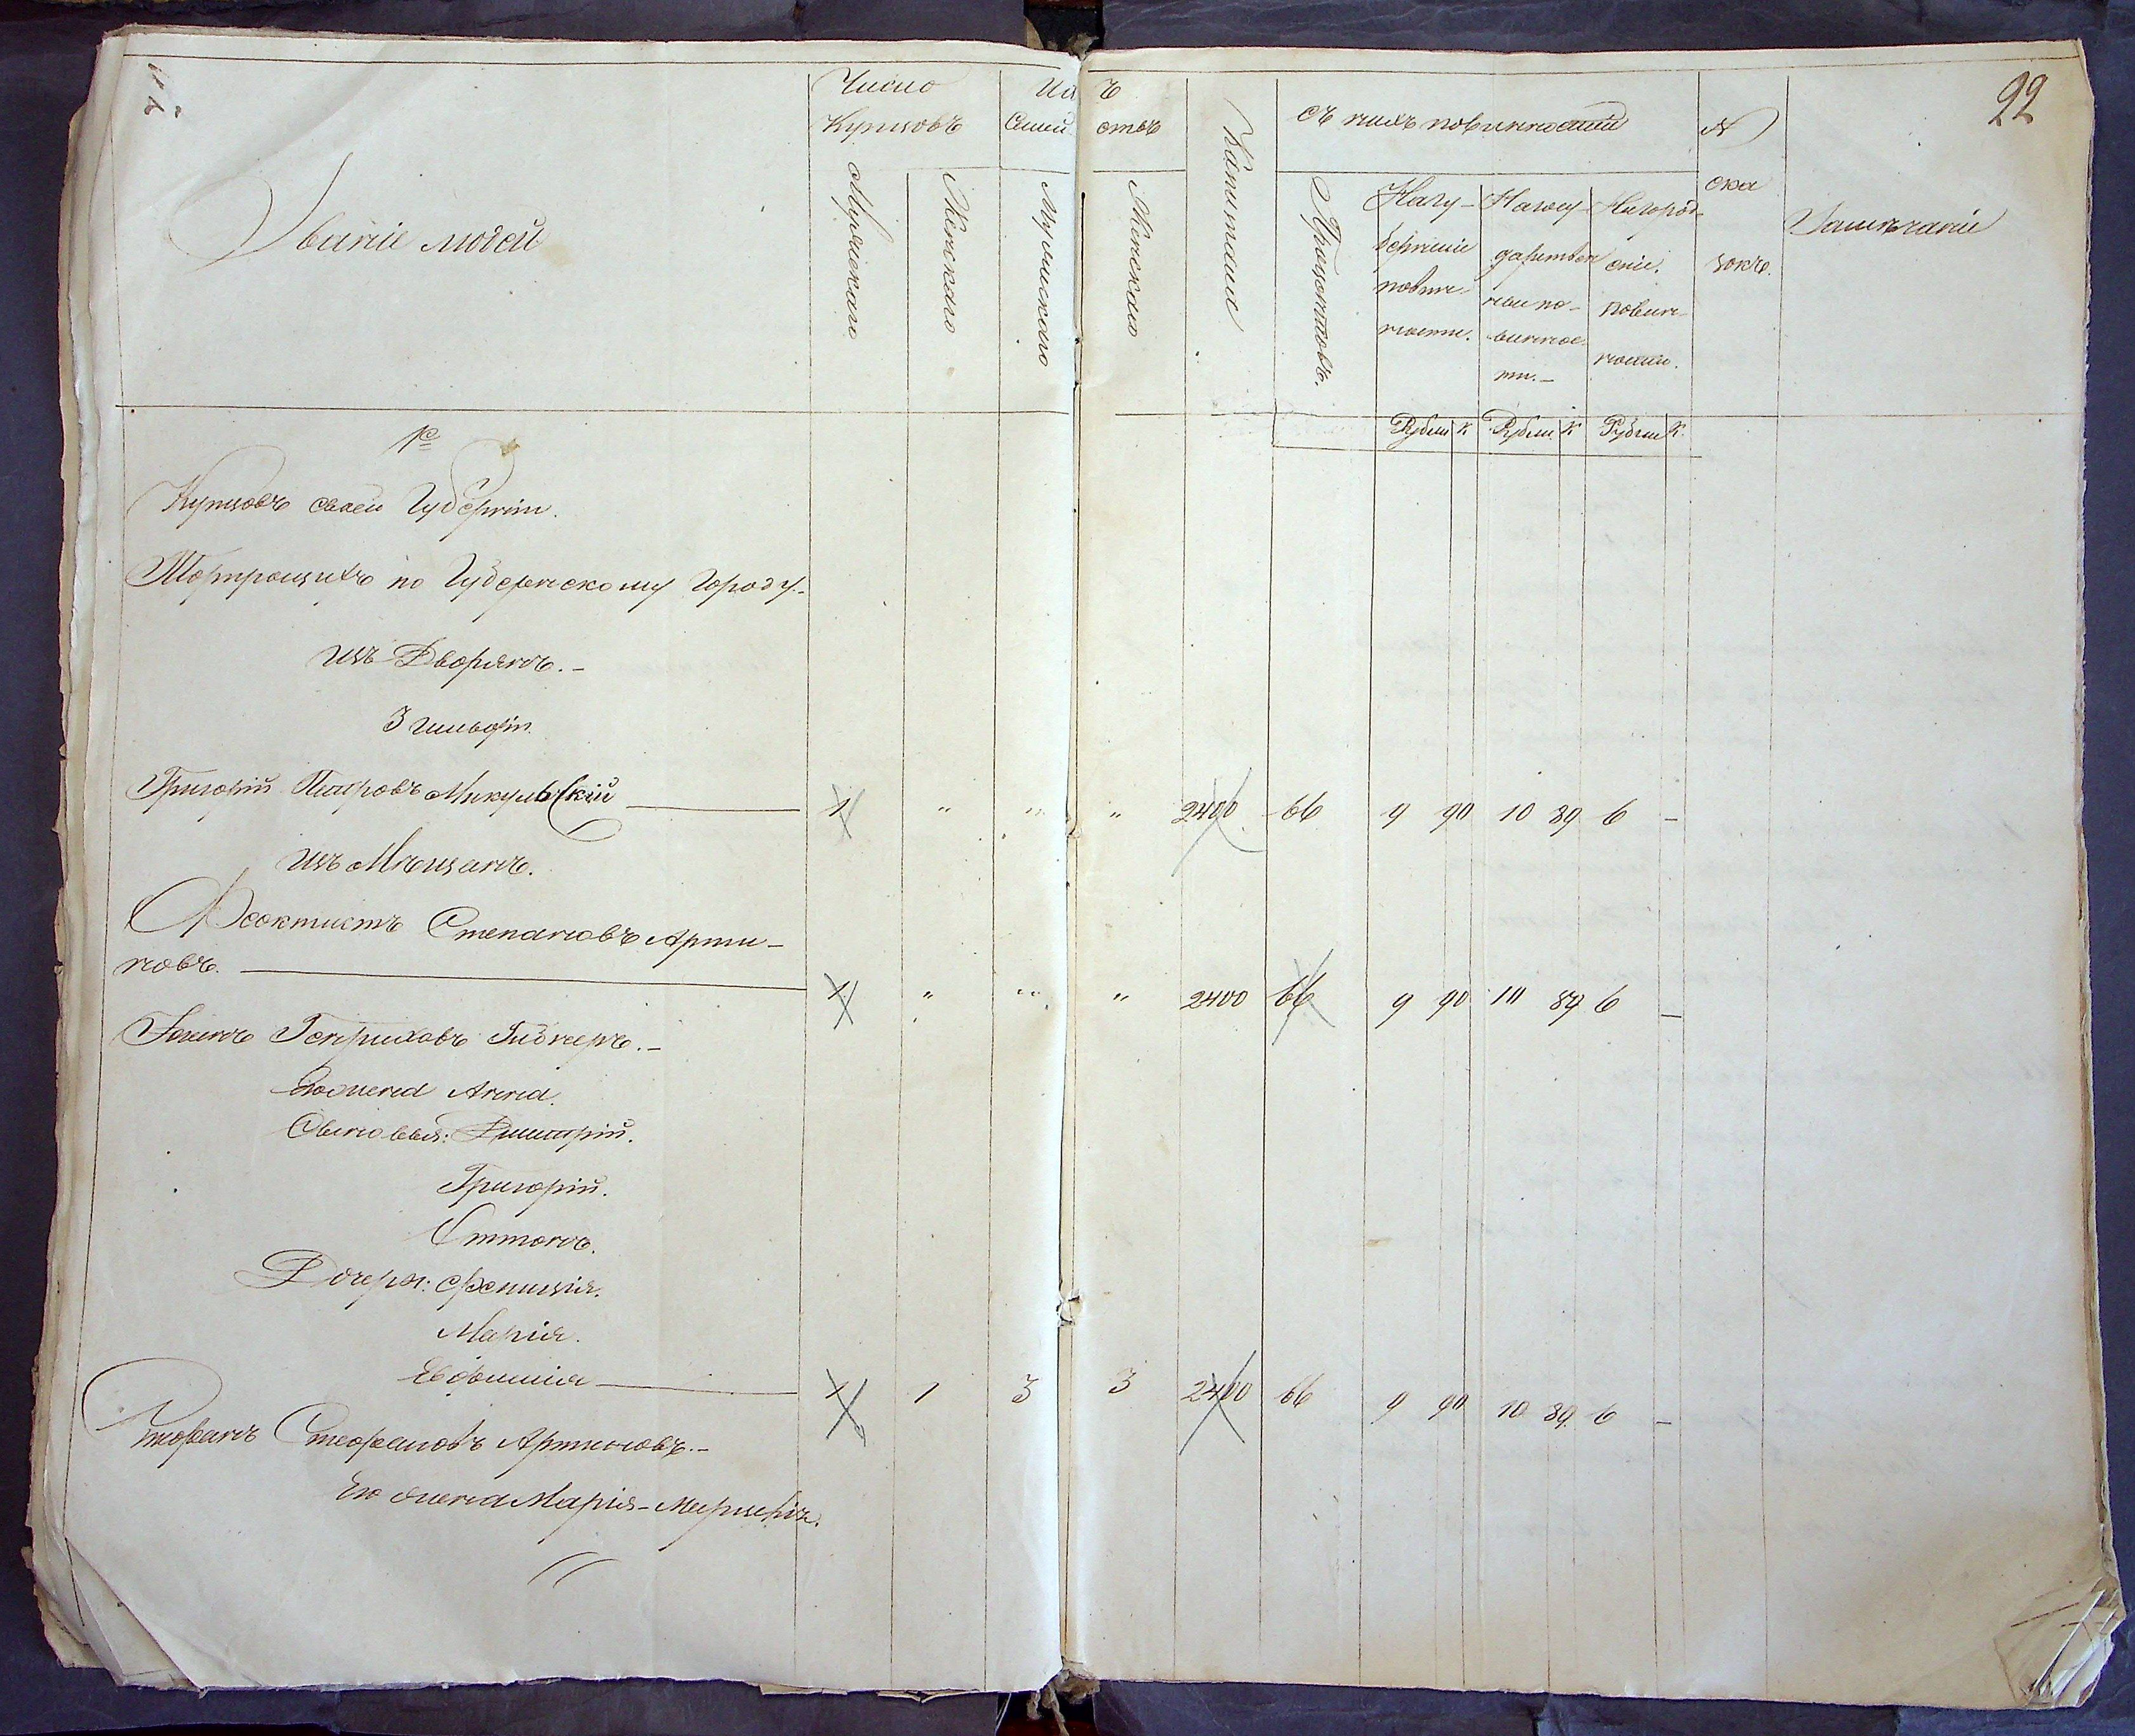 22
Число
Купцовъ
Мужескаго
Женскаго
Ихъ
Семействъ
Мужескаго
Женскаго
Капиталъ
съ нихъ повинностей
Процентовъ.
На гу-
бернскіе
повин-
ности.
На госу-
дарствен
ныя по-
виннос
ти.-
На город-
скіе.
повин-
ности.
№
ока
зокъ.
Замѣчаніе
Званіе людей
Рубли К Рубли К Рубли К.
Купцовъ своей Губерніи.
Торгующихъ по Губернскому Городу.-
Изъ Дворянъ.-
3 гильдіи.
Григорій Петровъ Микульскій 1 " " " 2400 66 9 90 10 89 6 -
Изъ Мѣщанъ.
Феоктистъ Степановъ Арти-
новъ. 1 " " " 2400 66 9 90 10 89 6 -
Генриховъ
Его жена Анна.
Сыновья: Дмитрій.
Григорій.
Антонъ.
Дочери:
Марія.
Евфимія 1 1 3 3 2400 66 9 90 10 89 6 -
Стефановъ Артиновъ.-
Его жена Марія-